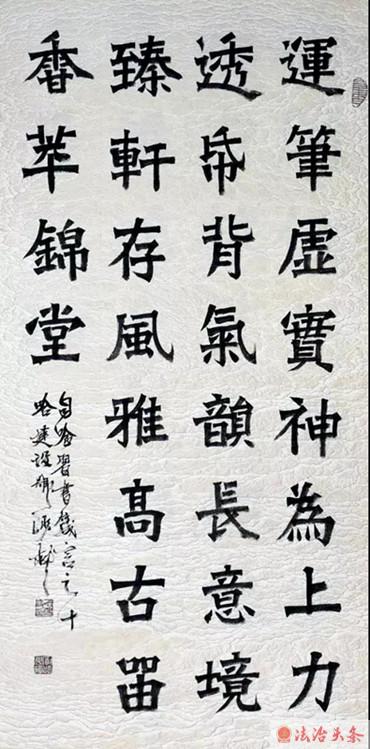 運筆虛實神為上力
透帋背氣韻長意境
臻軒存風雅髙古畱
香萃錦堂
習書言之十
法治头条